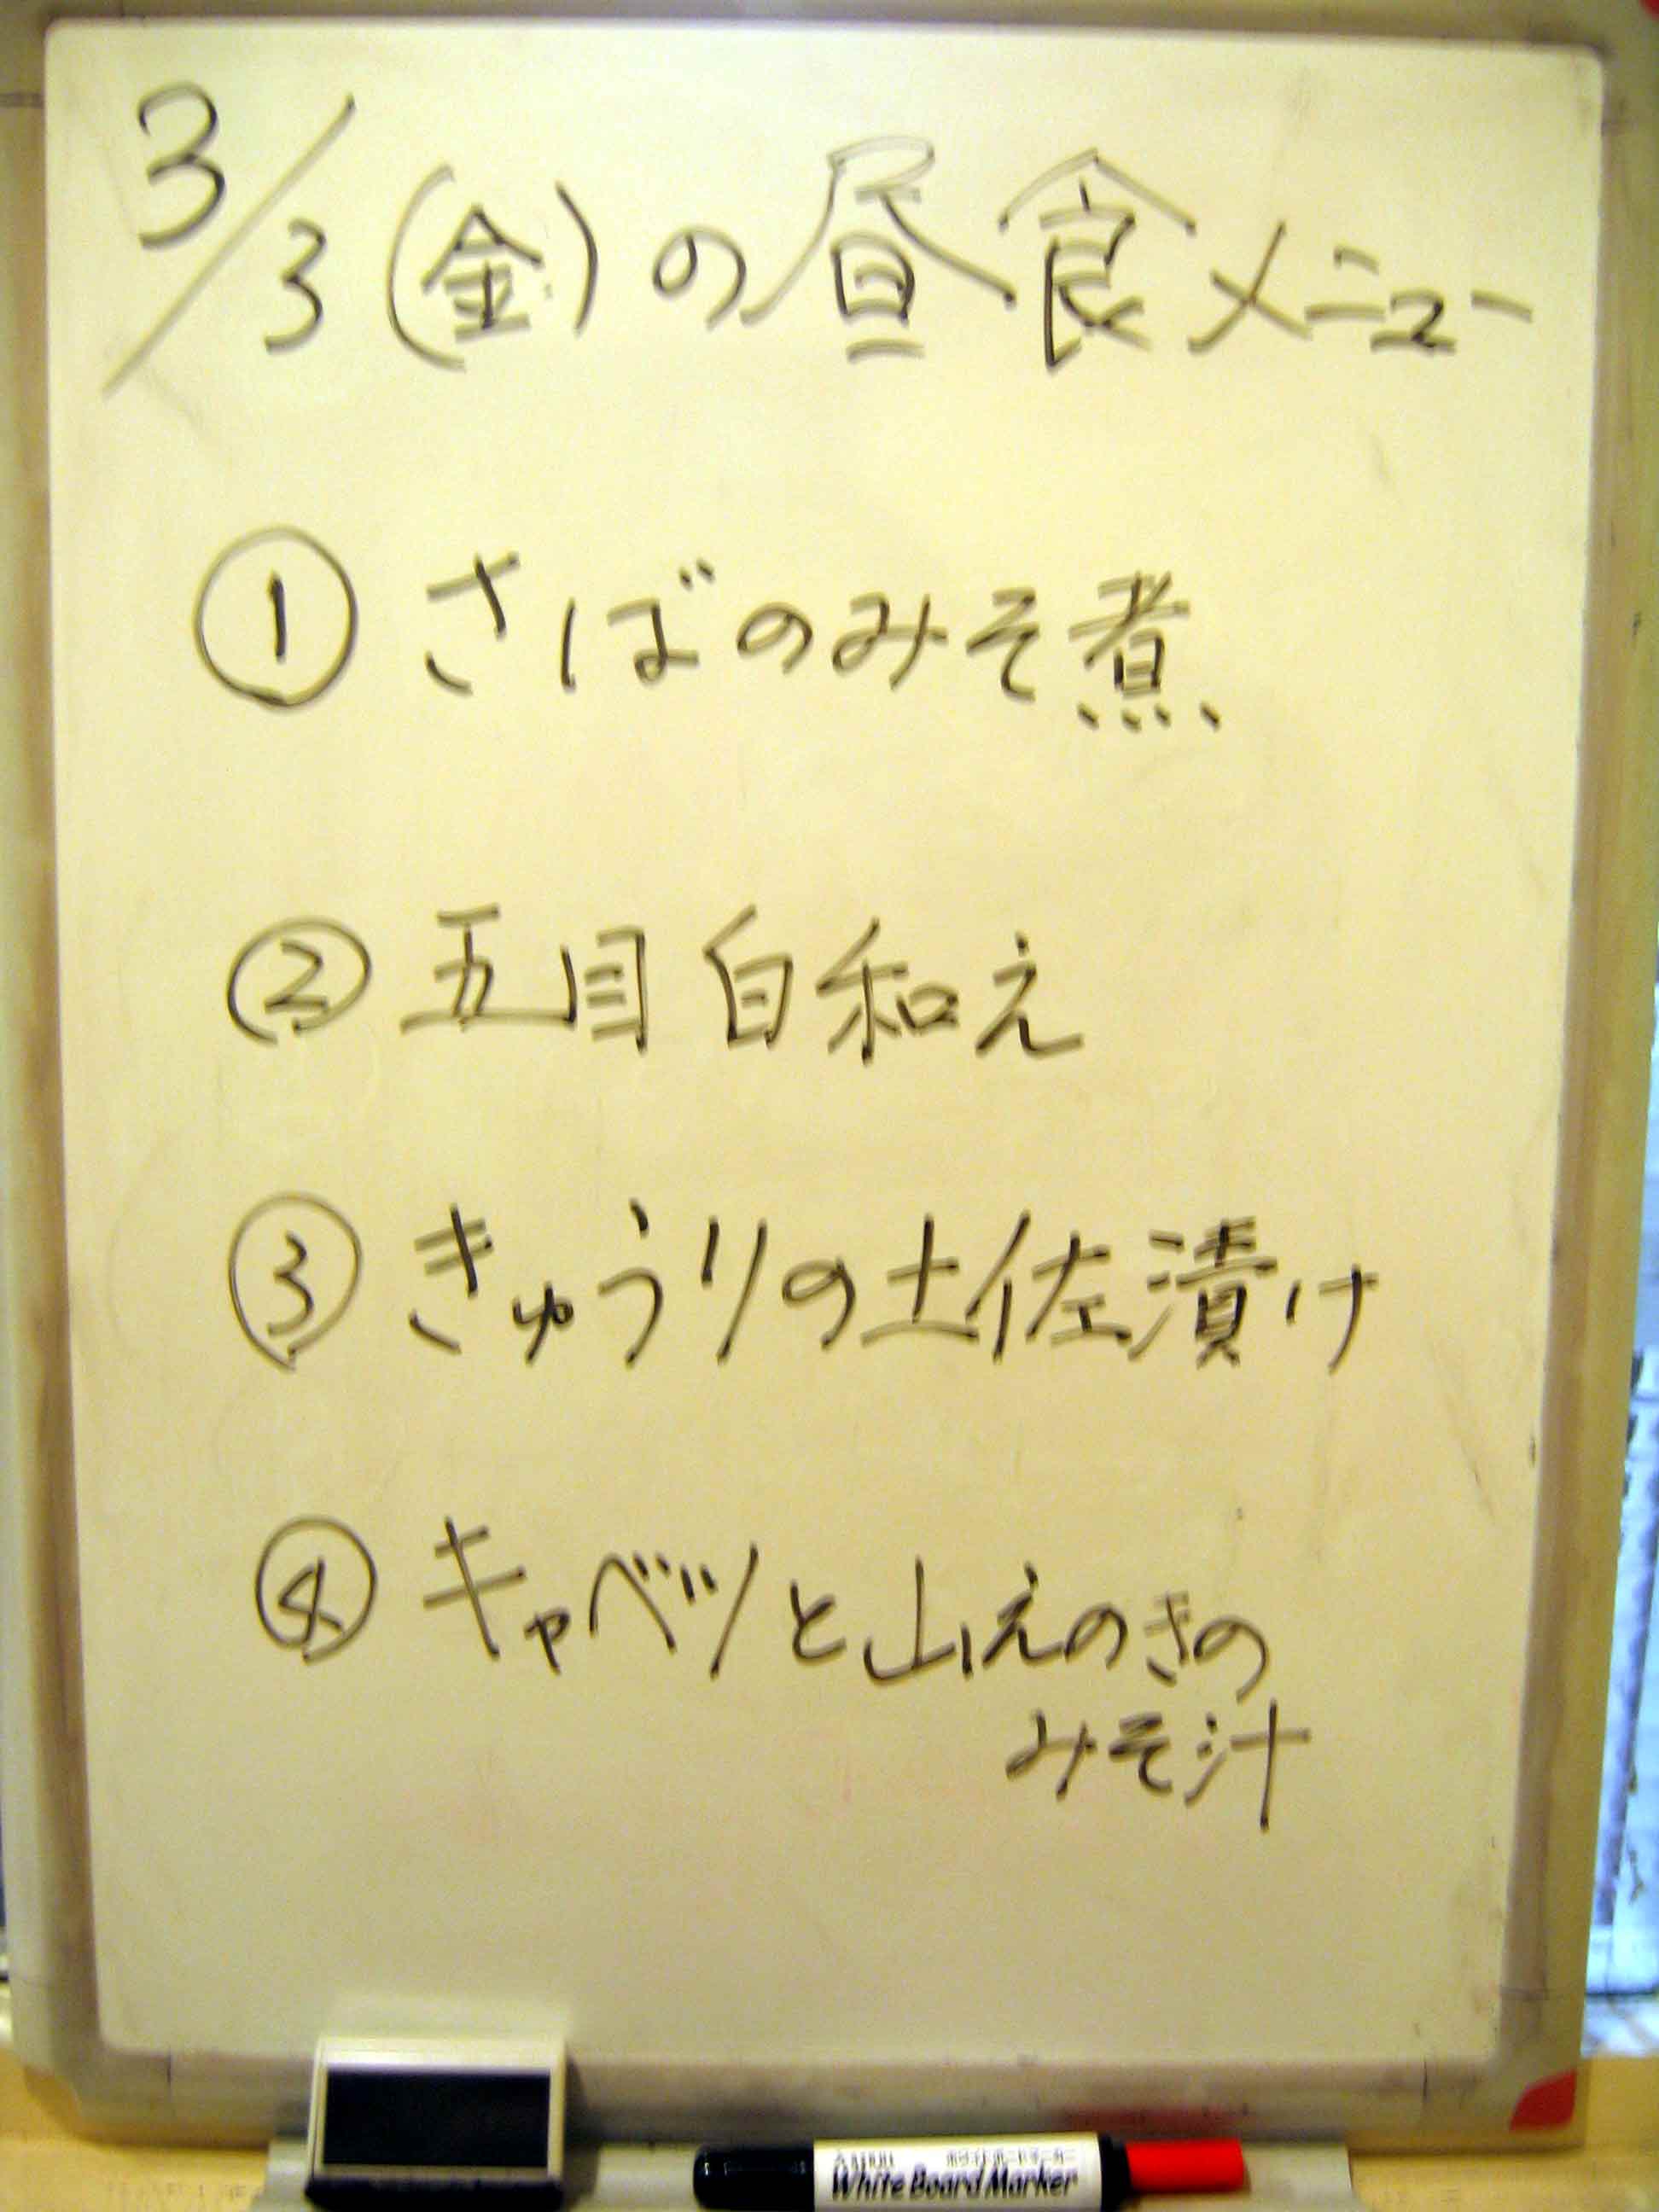 3/3(金)の昼食メニュー
① さばのみそ煮
② 五目白和え
③ きゅうりの土佐漬け
④ キャベツと山えのきの
みそ汁
ホワイトボードマーカー
White Board Marker